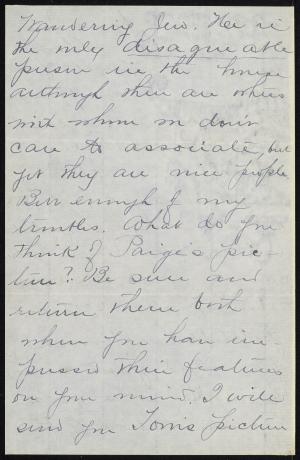 Wandering Jew. He is
the only disagreeable
person in the house
although there are others
with whom we don't
care to associate, but
yet they are nice people.
But enough of my
troubles. What do you
think of Paige's pic-
ture? Be sure and
return them both
when you have im-
pressed their features
on your mind. I will
send you Tom's picture